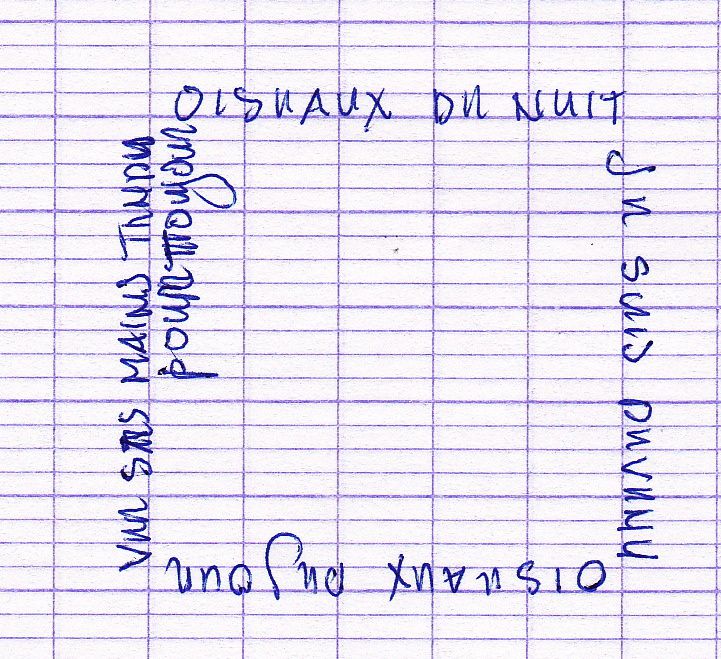 OISEAUX DE NUIT
Je SUIS DEVENU
OISEAUX DE jour
VER SES MAINS TENDU
pour toujour